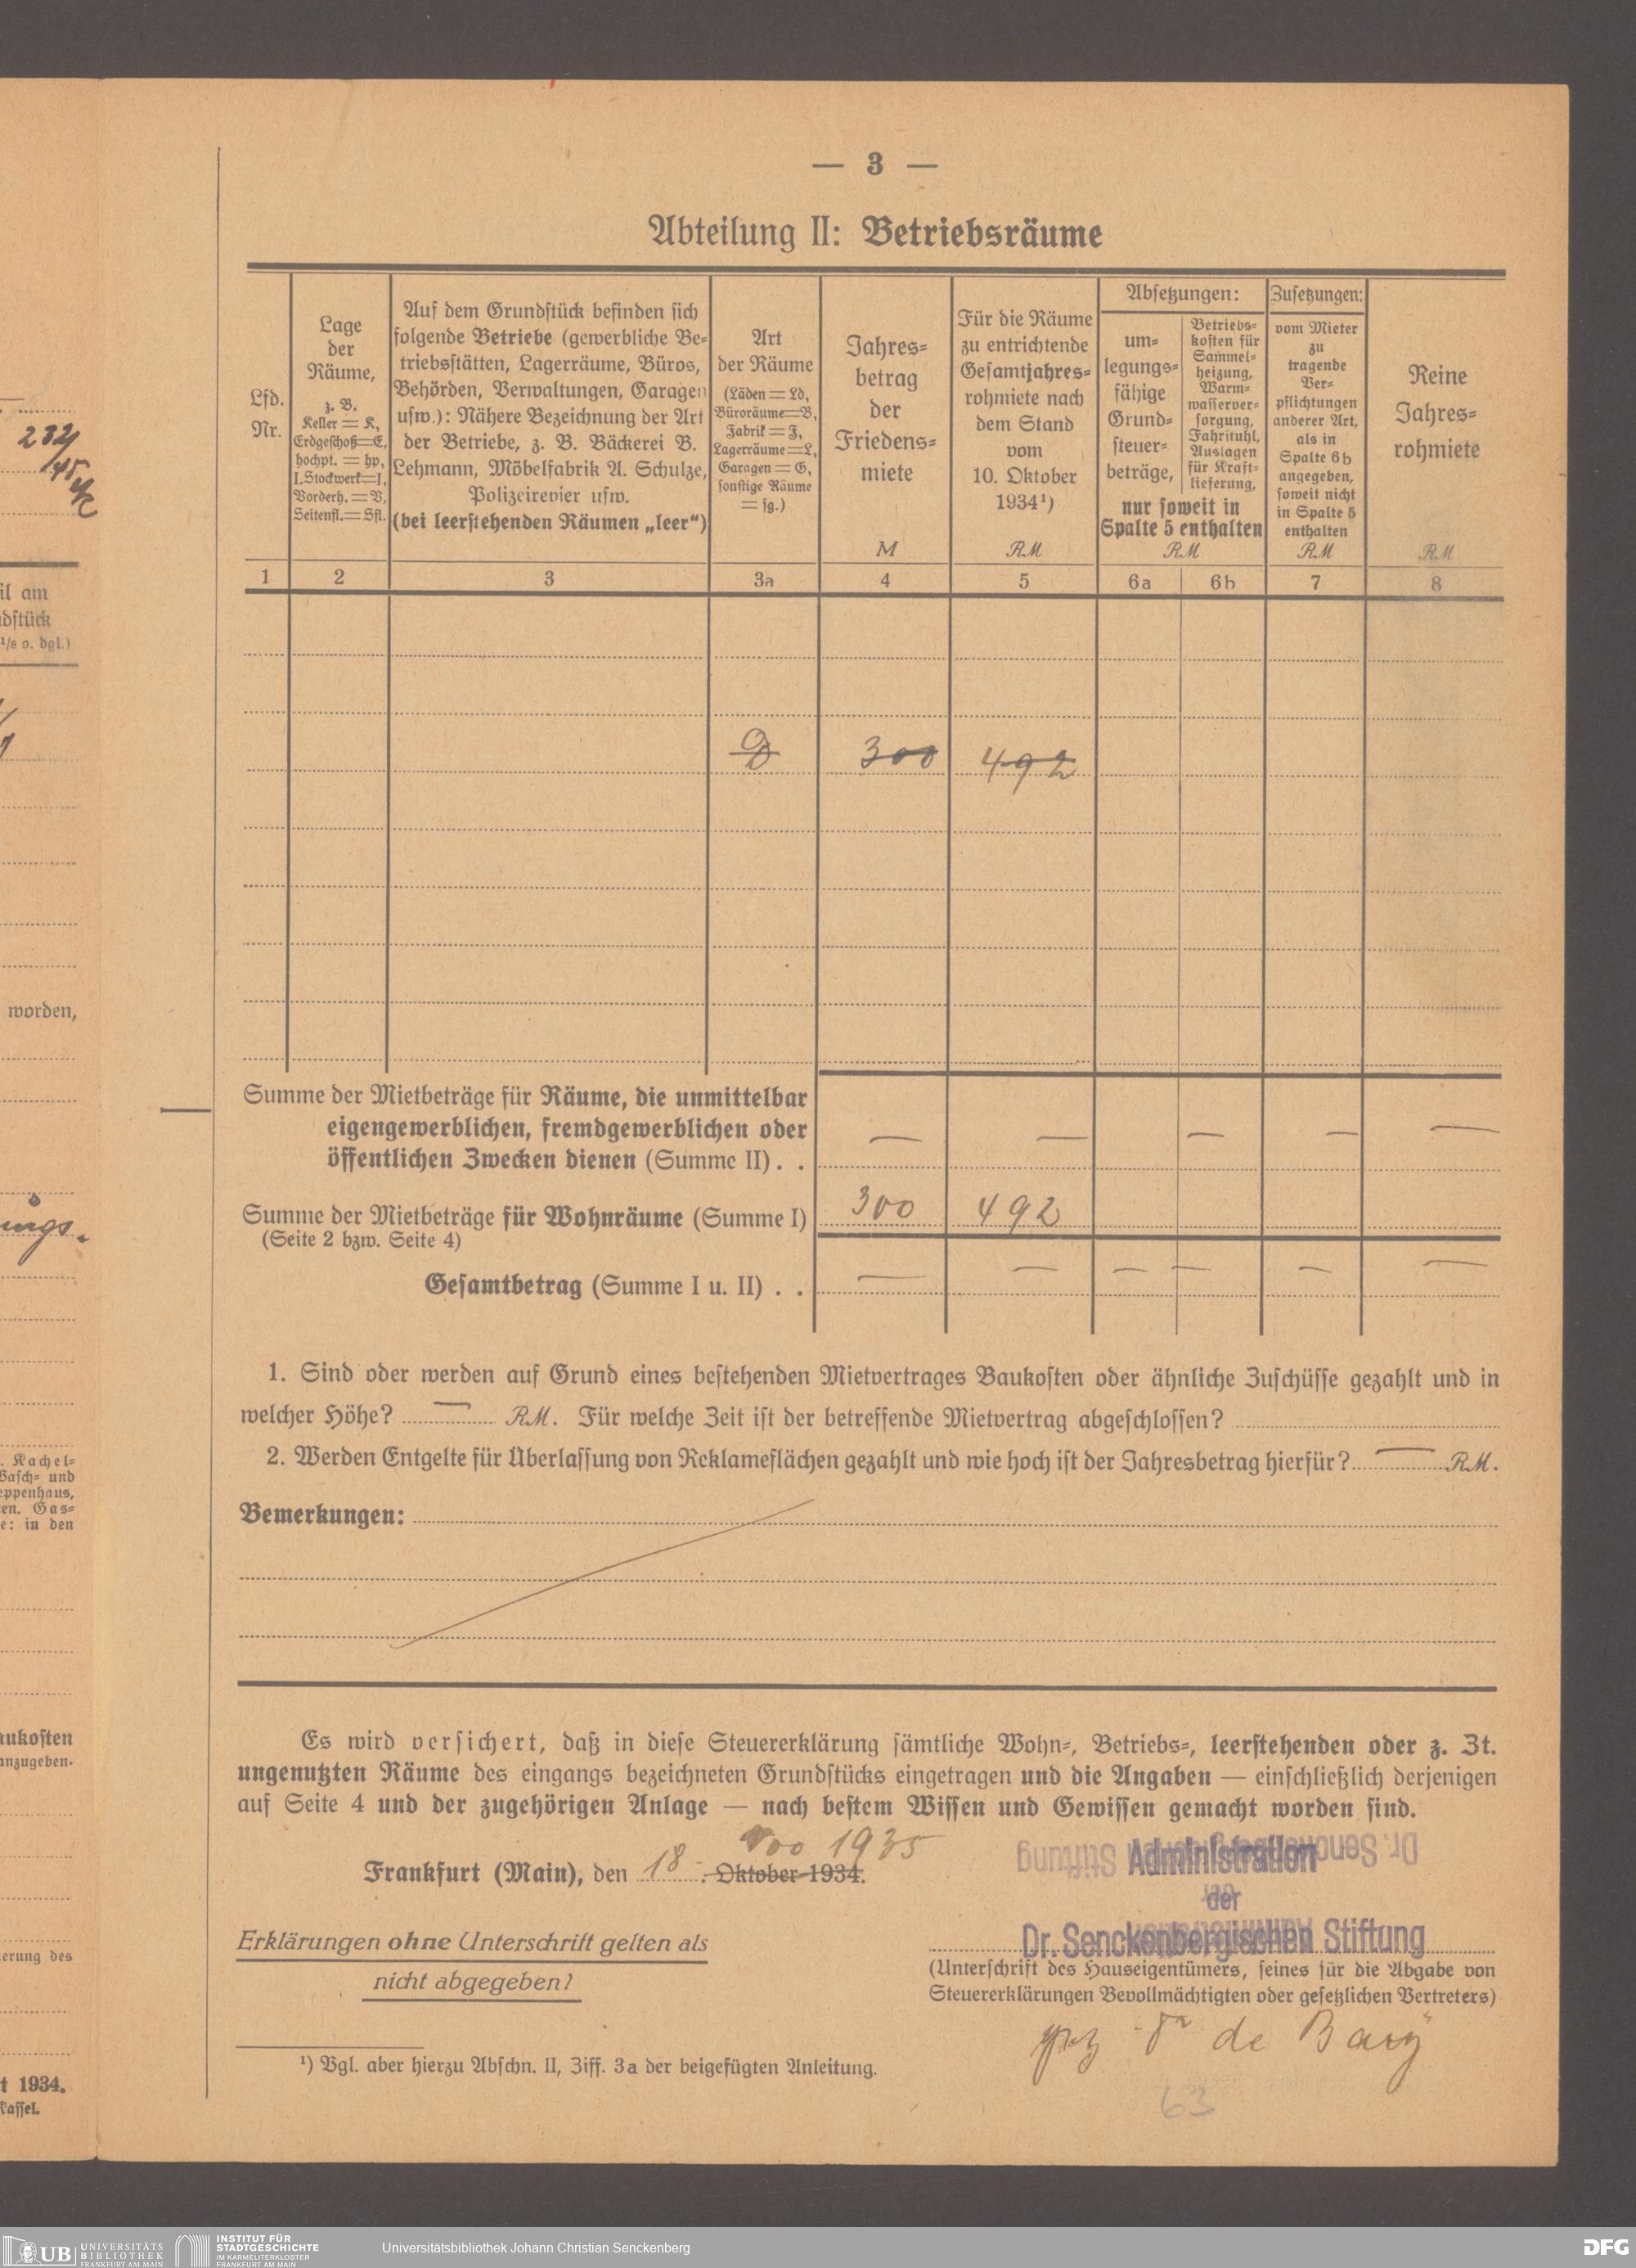 — 3 —
Abteilung II: Betriebsräume
Lfd.
Nr.
Lage
der
Räume,
z. B.
Keller = K,
Erdgeschoß=E,
hochpt. = hp,
I.Stockwerk=I,
Vorderh. = V,
Seitenfl.= Sfl.
Auf dem Grundstück befinden sich
folgende Betriebe (gewerbliche Be-
triebsstätten, Lagerräume, Büros,
Behörden, Verwaltungen, Garagen
usw.): Nähere Bezeichnung der Art
der Betriebe, z. B. Bäckerei B.
Lehmann, Möbelfabrik A. Schulze,
Polizeirevier usw.
(bei leerstehenden Räumen „leer“)
Art
der Räume
(Läden = Ld,
Büroräume=B,
Fabrik = F,
Lagerräume=L,
Garagen = G,
sonstige Räume
= sg.)
Jahres-
betrag
der
Friedens-
miete
M
Für die Räume
zu entrichtende
Gesamtjahres-
rohmiete nach
dem Stand
vom
10. Oktober
1934¹)
RM
Absetzungen:
um-
legungs-
fähige
Grund-
steuer-
beträge,
Betriebs-
kosten für
Sammel-
heizung,
Warm-
wasserver-
sorgung,
Fahrstuhl,
Auslagen
für Kraft-
lieferung,
nur soweit in
Spalte 5 enthalten
RM
Zusetzungen:
vom Mieter
zu
tragende
Ver-
pflichtungen
anderer Art,
als in
Spalte 6b
angegeben,
soweit nicht
in Spalte 5
enthalten
RM
Reine
Jahres-
rohmiete
RM
1 2 3 3a 4 5 6a 6b 7 8
300 492
Summe der Mietbeträge für Räume, die unmittelbar
eigengewerblichen, fremdgewerblichen oder
öffentlichen Zwecken dienen (Summe II) . . — — — — —
Summe der Mietbeträge für Wohnräume (Summe I) 300 492
(Seite 2 bzw. Seite 4)
Gesamtbetrag (Summe I u. II) . . — — — — — —
1. Sind oder werden auf Grund eines bestehenden Mietvertrages Baukosten oder ähnliche Zuschüsse gezahlt und in
welcher Höhe? — RM. Für welche Zeit ist der betreffende Mietvertrag abgeschlossen?
2. Werden Entgelte für Überlassung von Reklameflächen gezahlt und wie hoch ist der Jahresbetrag hierfür? — RM.
Bemerkungen:
Es wird versichert, daß in diese Steuererklärung sämtliche Wohn-, Betriebs-, leerstehenden oder z. Zt.
ungenutzten Räume des eingangs bezeichneten Grundstücks eingetragen und die Angaben — einschließlich derjenigen
auf Seite 4 und der zugehörigen Anlage — nach bestem Wissen und Gewissen gemacht worden sind.
1935
Frankfurt (Main), den 18. Oktober 1934.
Administration
der
Dr. Senckenbergischen Stiftung
Erklärungen ohne Unterschrift gelten als
nicht abgegeben!
(Unterschrift des Hauseigentümers, seines für die Abgabe von
Steuererklärungen Bevollmächtigten oder gesetzlichen Vertreters)
gez Dr de Bary
¹) Vgl. aber hierzu Abschn. II, Ziff. 3a der beigefügten Anleitung.
63
232/
il am
dstück
¹/8 o. dgl.)
worden,
ings.
. Kachel-
Wasch- und
eppenhaus,
en. Gas-
e: in den
aukosten
anzugeben.
erung des
t 1934.
Kassel.
UB UNIVERSITÄTS
BIBLIOTHEK
FRANKFURT AM MAIN
INSTITUT FÜR
STADTGESCHICHTE
IM KARMELITERKLOSTER
FRANKFURT AM MAIN
Universitätsbibliothek Johann Christian Senckenberg
DFG